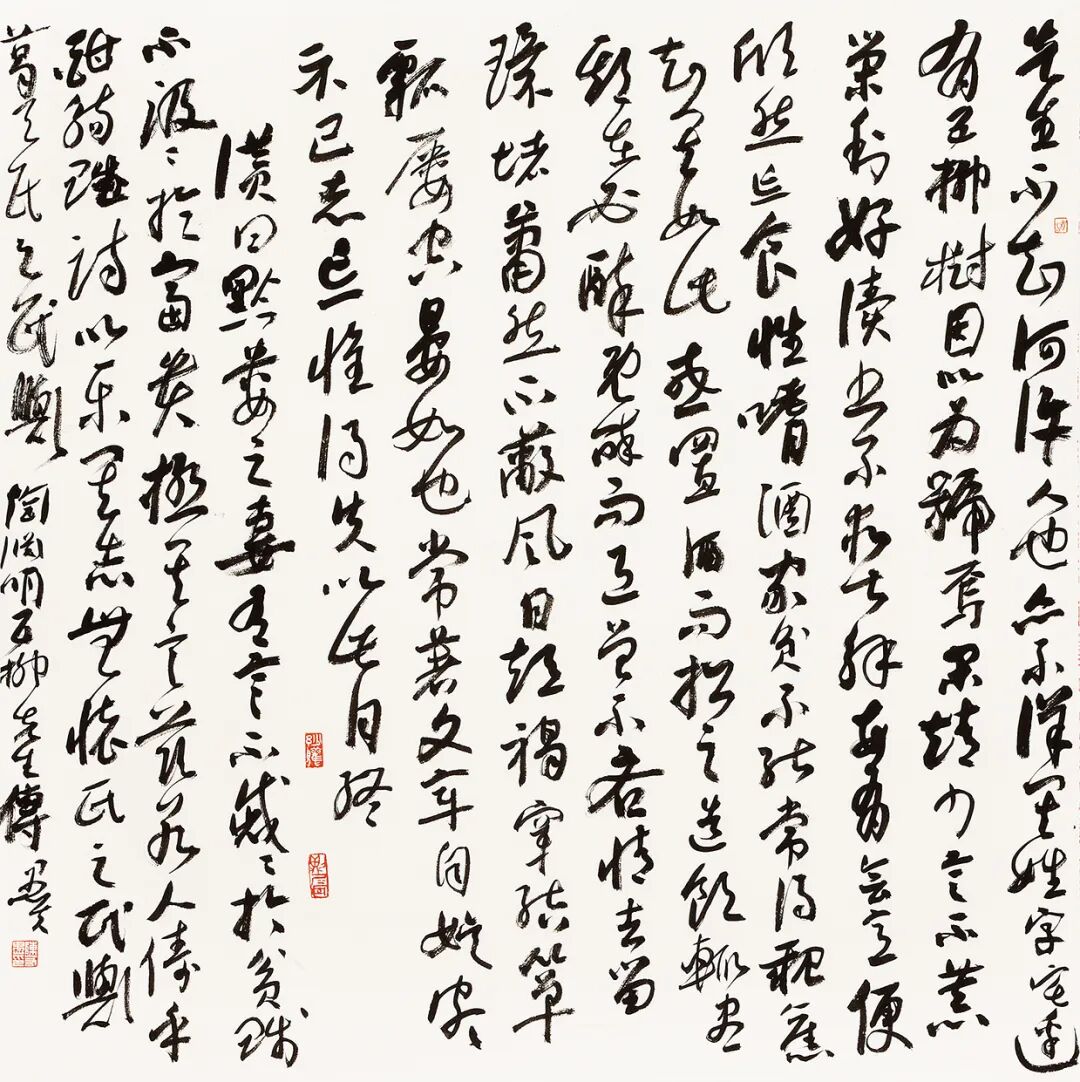 先生不知何許人也亦不詳其姓字宅邊
有五柳樹因以為號焉閑靖少言不慕
榮利好讀書不求甚解每有會意便
欣然忘食性嗜酒家貧不能常得親舊
知其如此或置酒而招之造飲輒盡
期在必醉既醉而退曾不吝情去留
環堵蕭然不蔽風日短褐穿結簞
瓢屢空晏如也常著文章自娛
示己志忘懷得失以此自終
讚曰黔婁之妻有言不戚〻於貧賤
不汲〻於富貴極其言茲若人儔乎
酣觴賦詩以樂其志無懷氏之民歟
葛天氏之民歟 陶淵明五柳先生傳